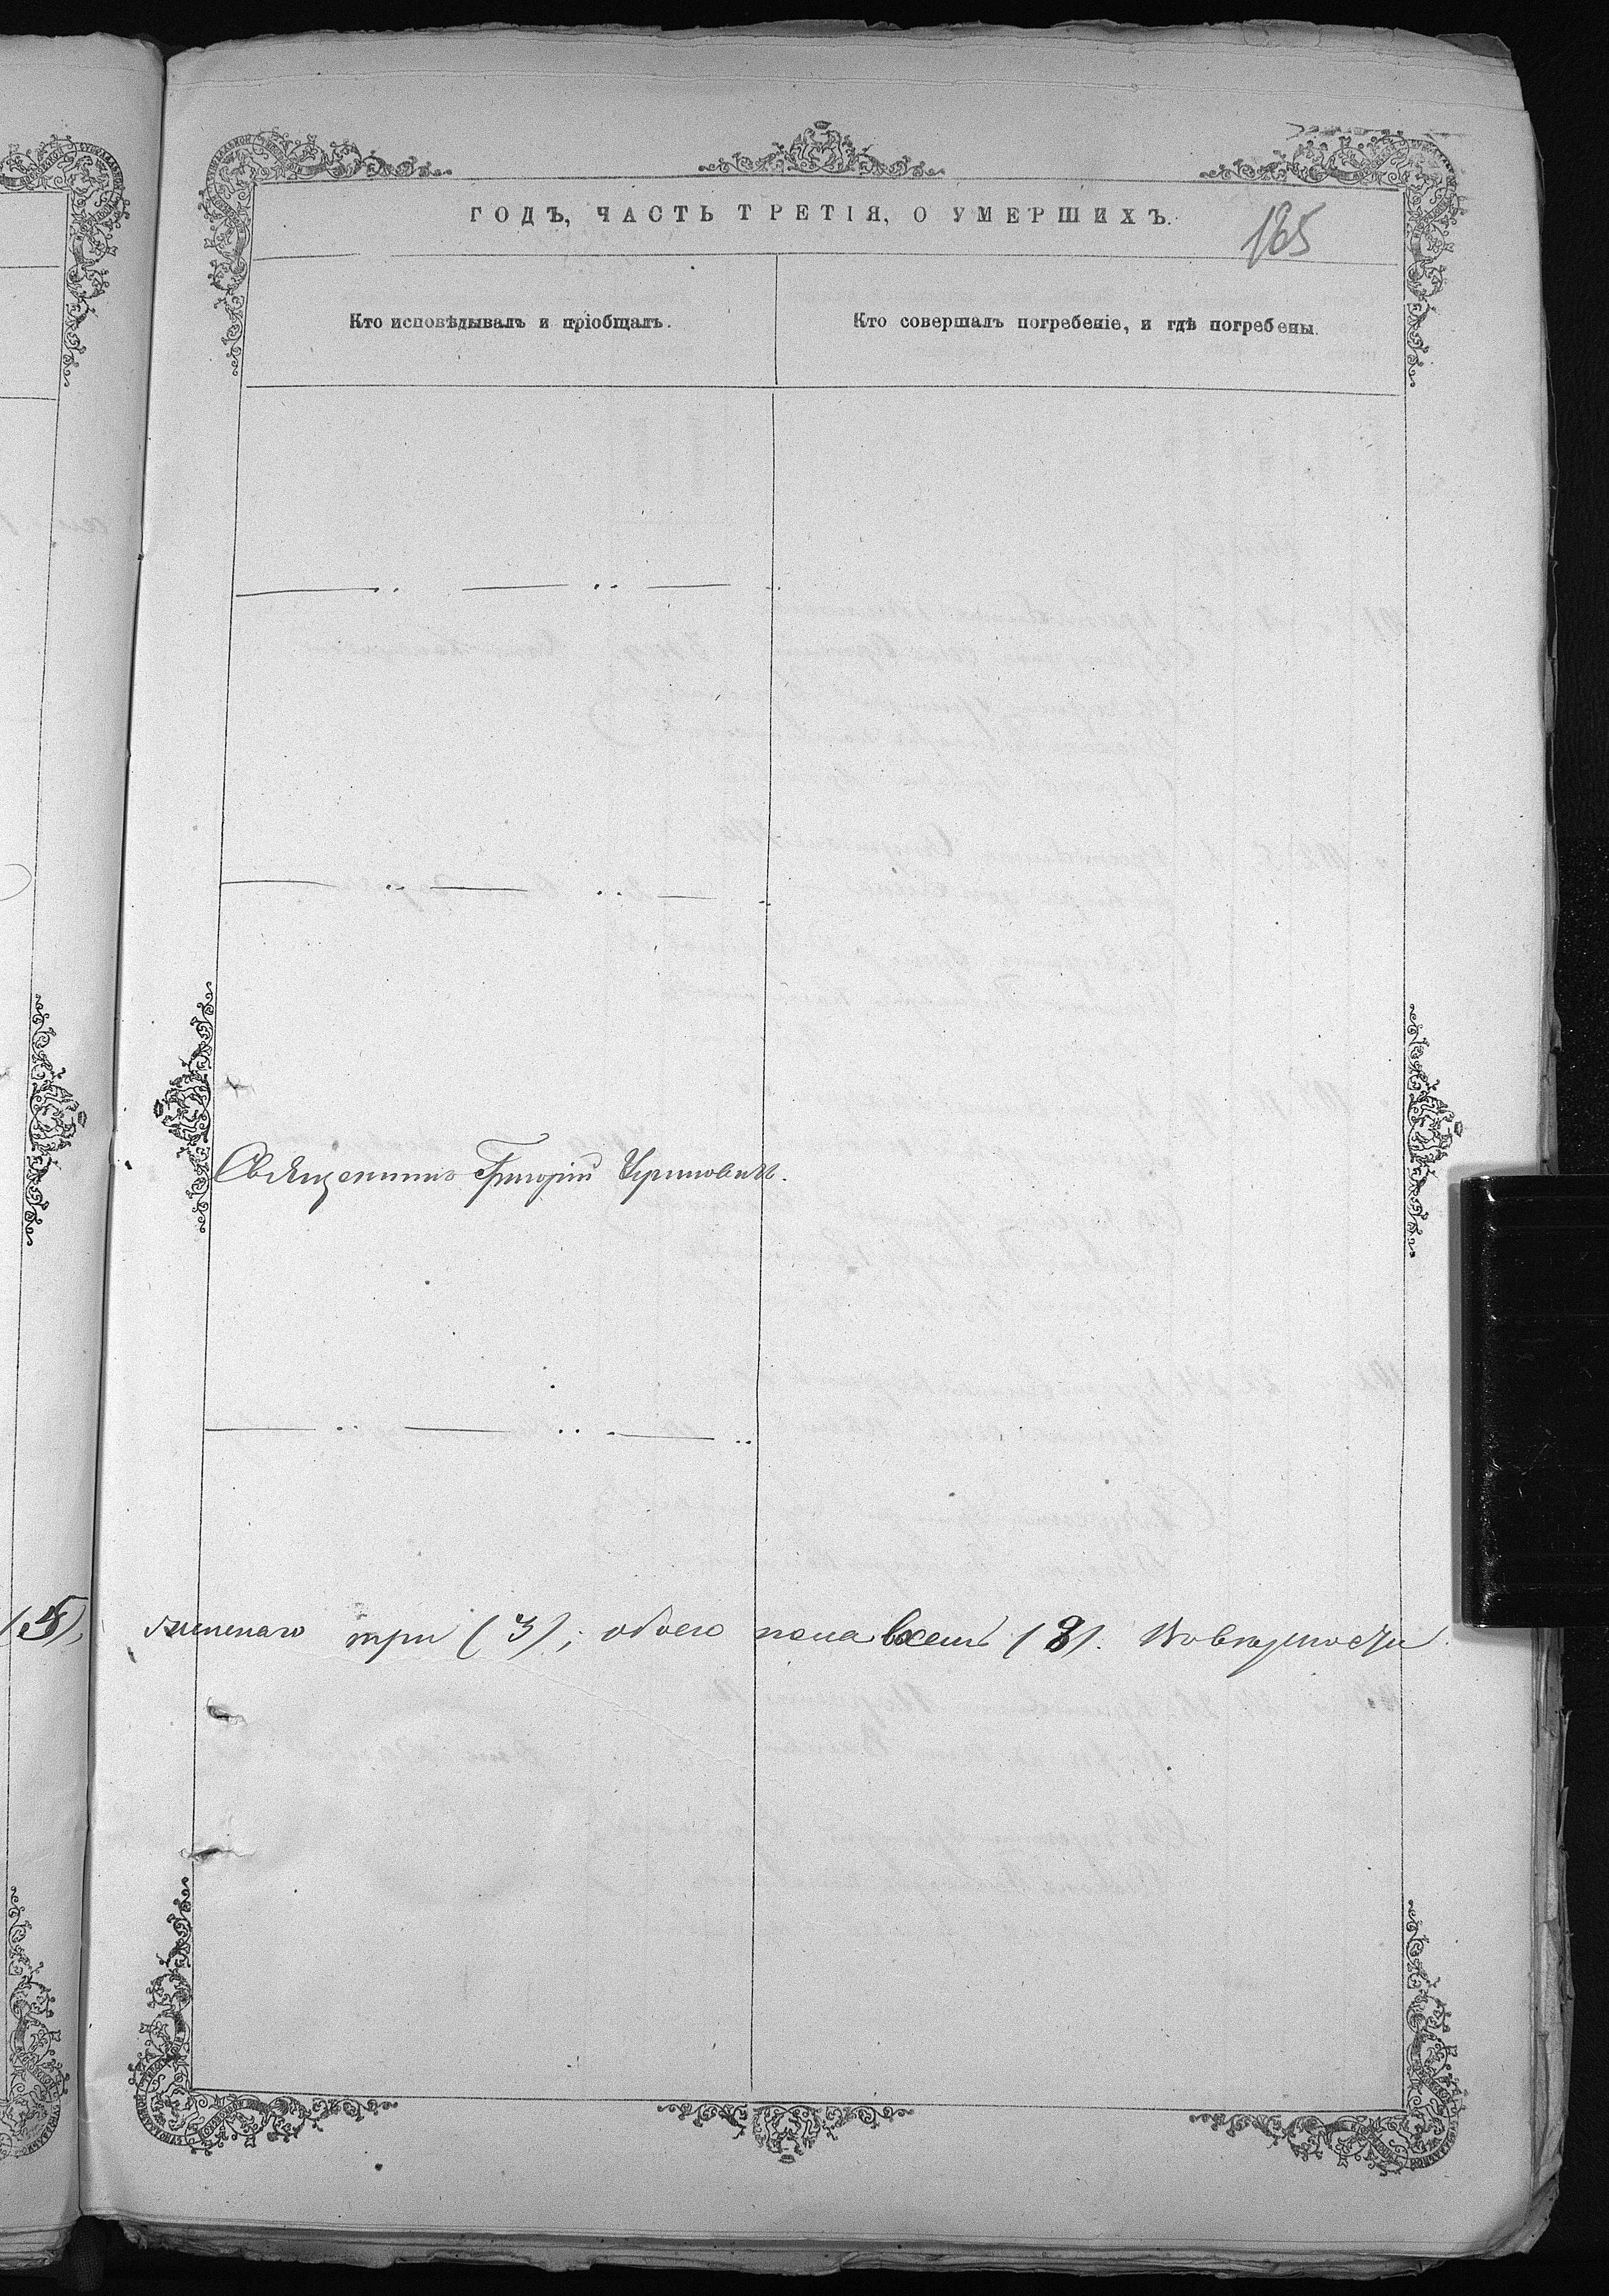 ГОДЪ, ЧАСТЬ ТРЕТІЯ, О УМЕРШИХЪ.
185
Кто исповѣдывалъ и пріобщалъ.
Кто совершалъ погребеніе, и гдѣ погребены.
Священникъ Григорій
(5), женскаго три (3); обоего пола восемь (8). Вовкупности